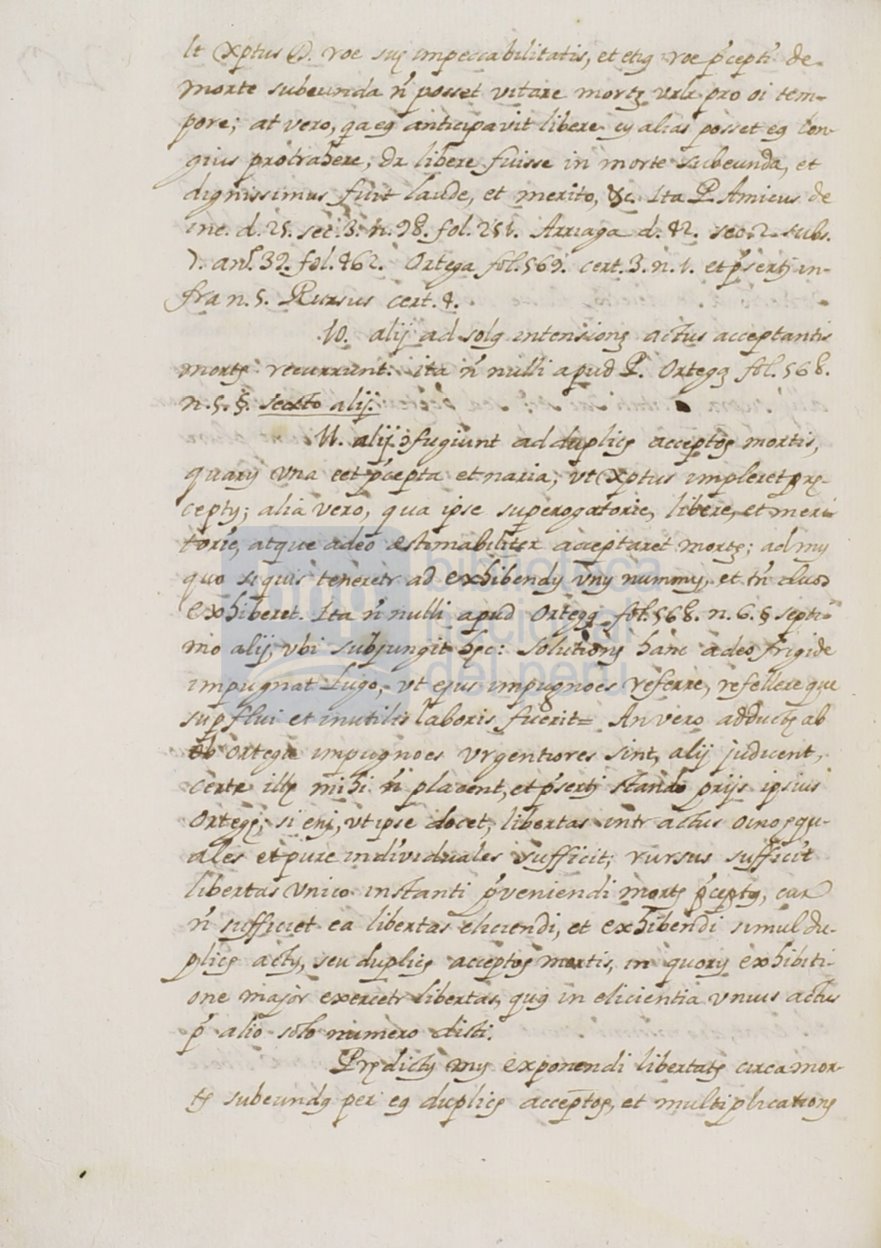 lt Xptus D. roe suę impeccabilitatis, et etiā roe p̃cepti de
morte subeunda ñ posset vitare mortē vałr pro oi tem-
pore; at vero, qa eā anticipavit libere cū alias posset eā lon-
gius protrahere, dr libere fuisse in morte subeunda, et
dignissimus fuit laude, et merito, &c. Ita P. Amicus de
inc. d. 25. sec. 3. n. 98. fol. 251. Arriaga d. 42. sec. 2. subs.
7. an. 39. fol. 462. Ortega fol. 569. cert. 3. n. 1. et p̃sertī in-
fra n. 5. Rursus cert. 4.
10. alij ad solā intensionē actus acceptantis
mortē recurrunt. ita ñ nulli apud P. Ortegā fol. 568.
n. 5. §. sexto alij.
11. alij ɔfugiunt ad duplicē acceptoē mortis,
quarū una eēt p̃cepta et naria, vt Xptus impleret prę-
ceptū; alia vero, qua ipse superogatorie, libere, et meri-
torie, atque adeo æstimabiliter acceptaret mortē; ad mū
quo si quis teneretr ad exhibendū vnū nummū, et tñ duos
exhiberet. Ita ñ nulli apud Ortegā fol. 568. n. 6. § septi-
mo alij, vbi subjungit hęc: solutionē hanc adeo frigide
impugnat Lugo, vt ejus impugnoēs referre, refellereque
supflui et inutilis laboris fuerit= An vero adductę ab
ob Ortega impugnoes vrgentiores sint, alij judicent,
certe illę mihi ñ placent, et p̃sertī stando prijs ipsius
Ortegę; si enī, vt ipse docet, libertas intr actus oino equ-
ales et pure individuales sufficit; rursus sufficit
libertas vnico instanti p̃veniendi mortis p̃ceptū, cur
ñ sufficiet ea libertas eliciendi, et exhibendi simul du-
plicē actū, seu duplicē acceptoē mortis, in quorū exhibiti-
one major exercetr libertas, quā in elicientia vnius actus
p̃ alio solo numero disti.
Prędictū mū exponendi libertatē circa mor-
tē subeundā per eā duplicē acceptoē, et multiplicationē
biblioteca
nacional
del perú